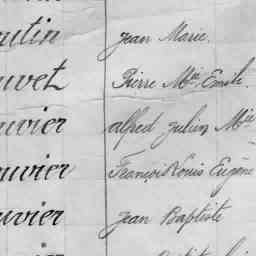 utin Jean Marie.
uvet Pierre Mie Emile.
uvier alfred Julien Mie
uvier François Louis Eugène
uvier Jean Baptiste